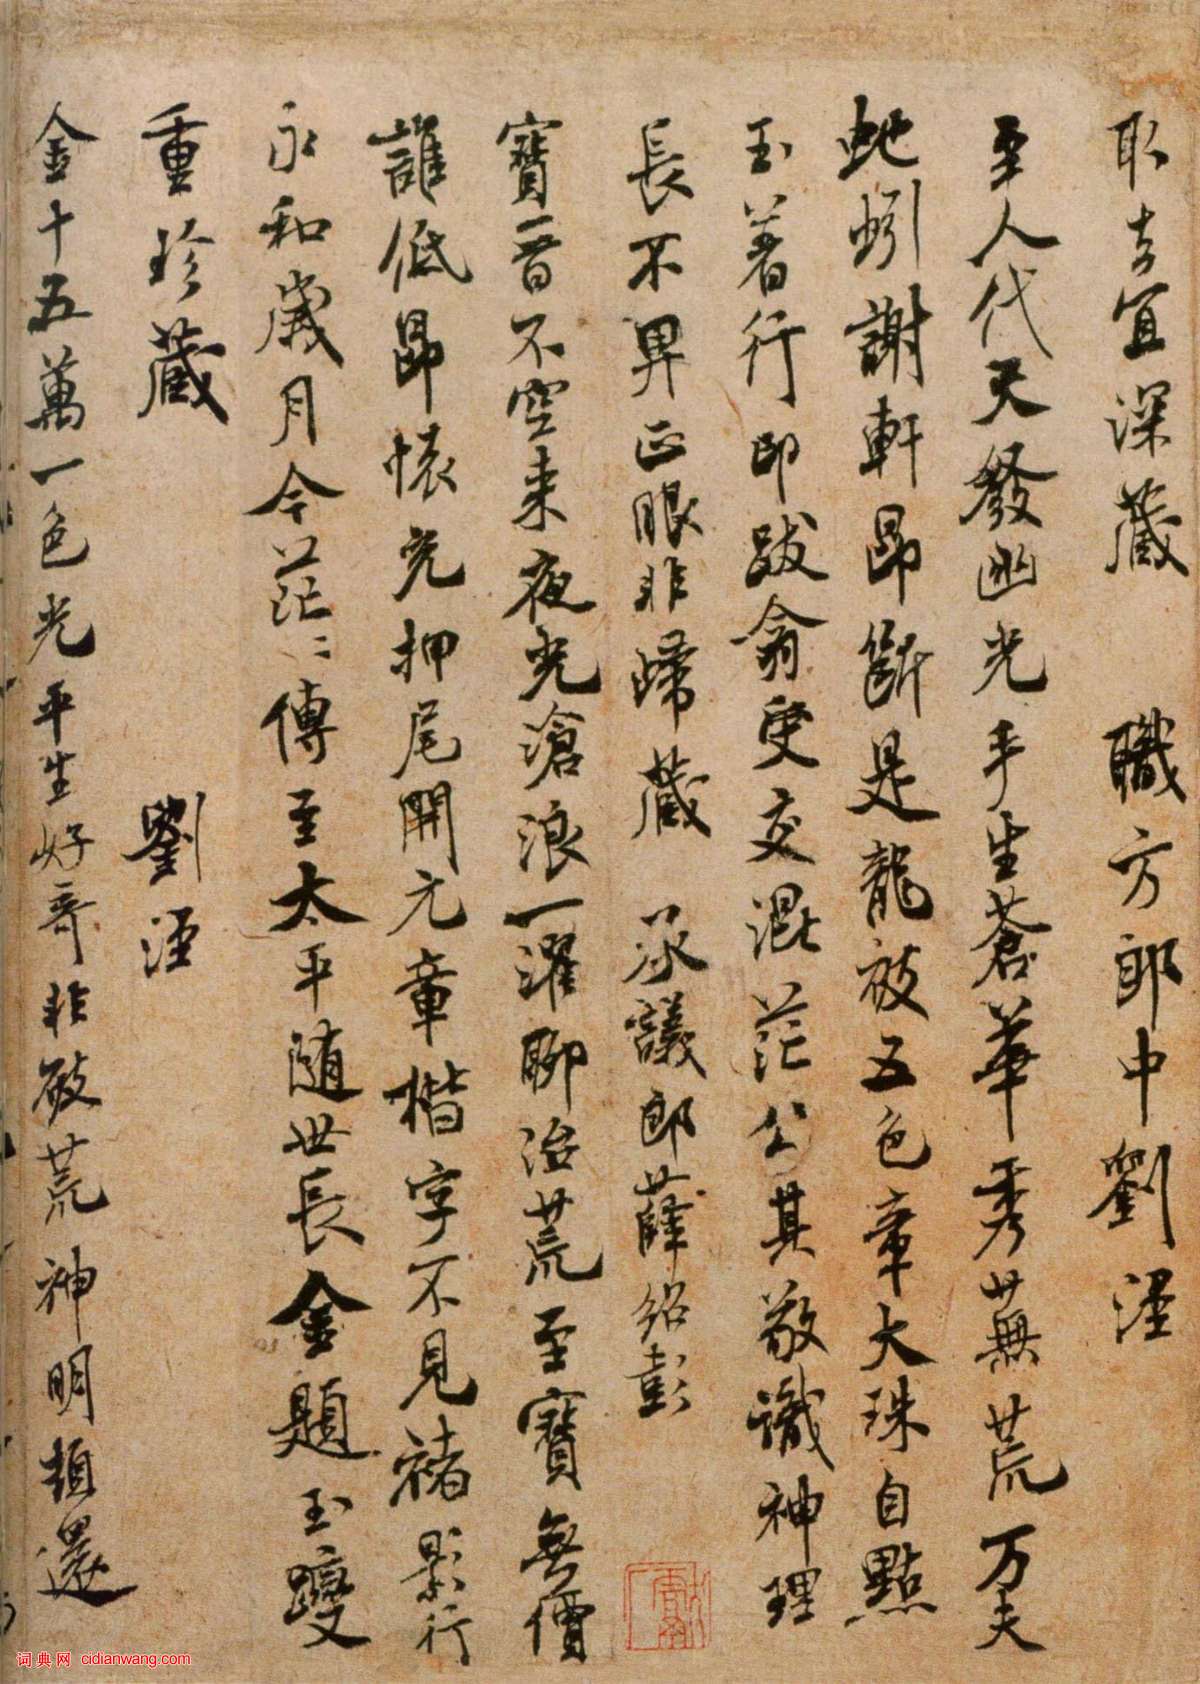 取去宜深藏 職方郎中劉涇
至人代天發幽光手生蒼華秀蕪荒万夫
虵蚓謝軒昂斷是龍被五色章大珠自點
玉着行印跋翁受交混茫公其敬識神理
長不畀正眼非歸藏 承議郎薛紹彭
寶晉不空来夜光滄浪一濯聊治荒至寶無價
誰低昂懷充押尾開元章楷字不見褚影行
永和歲月今茫〻傳至太平随世長金題玉躞
重珍藏 劉涇
金十五萬一色光平生好奇非破荒神明頓還
词典网 cidianwang.com